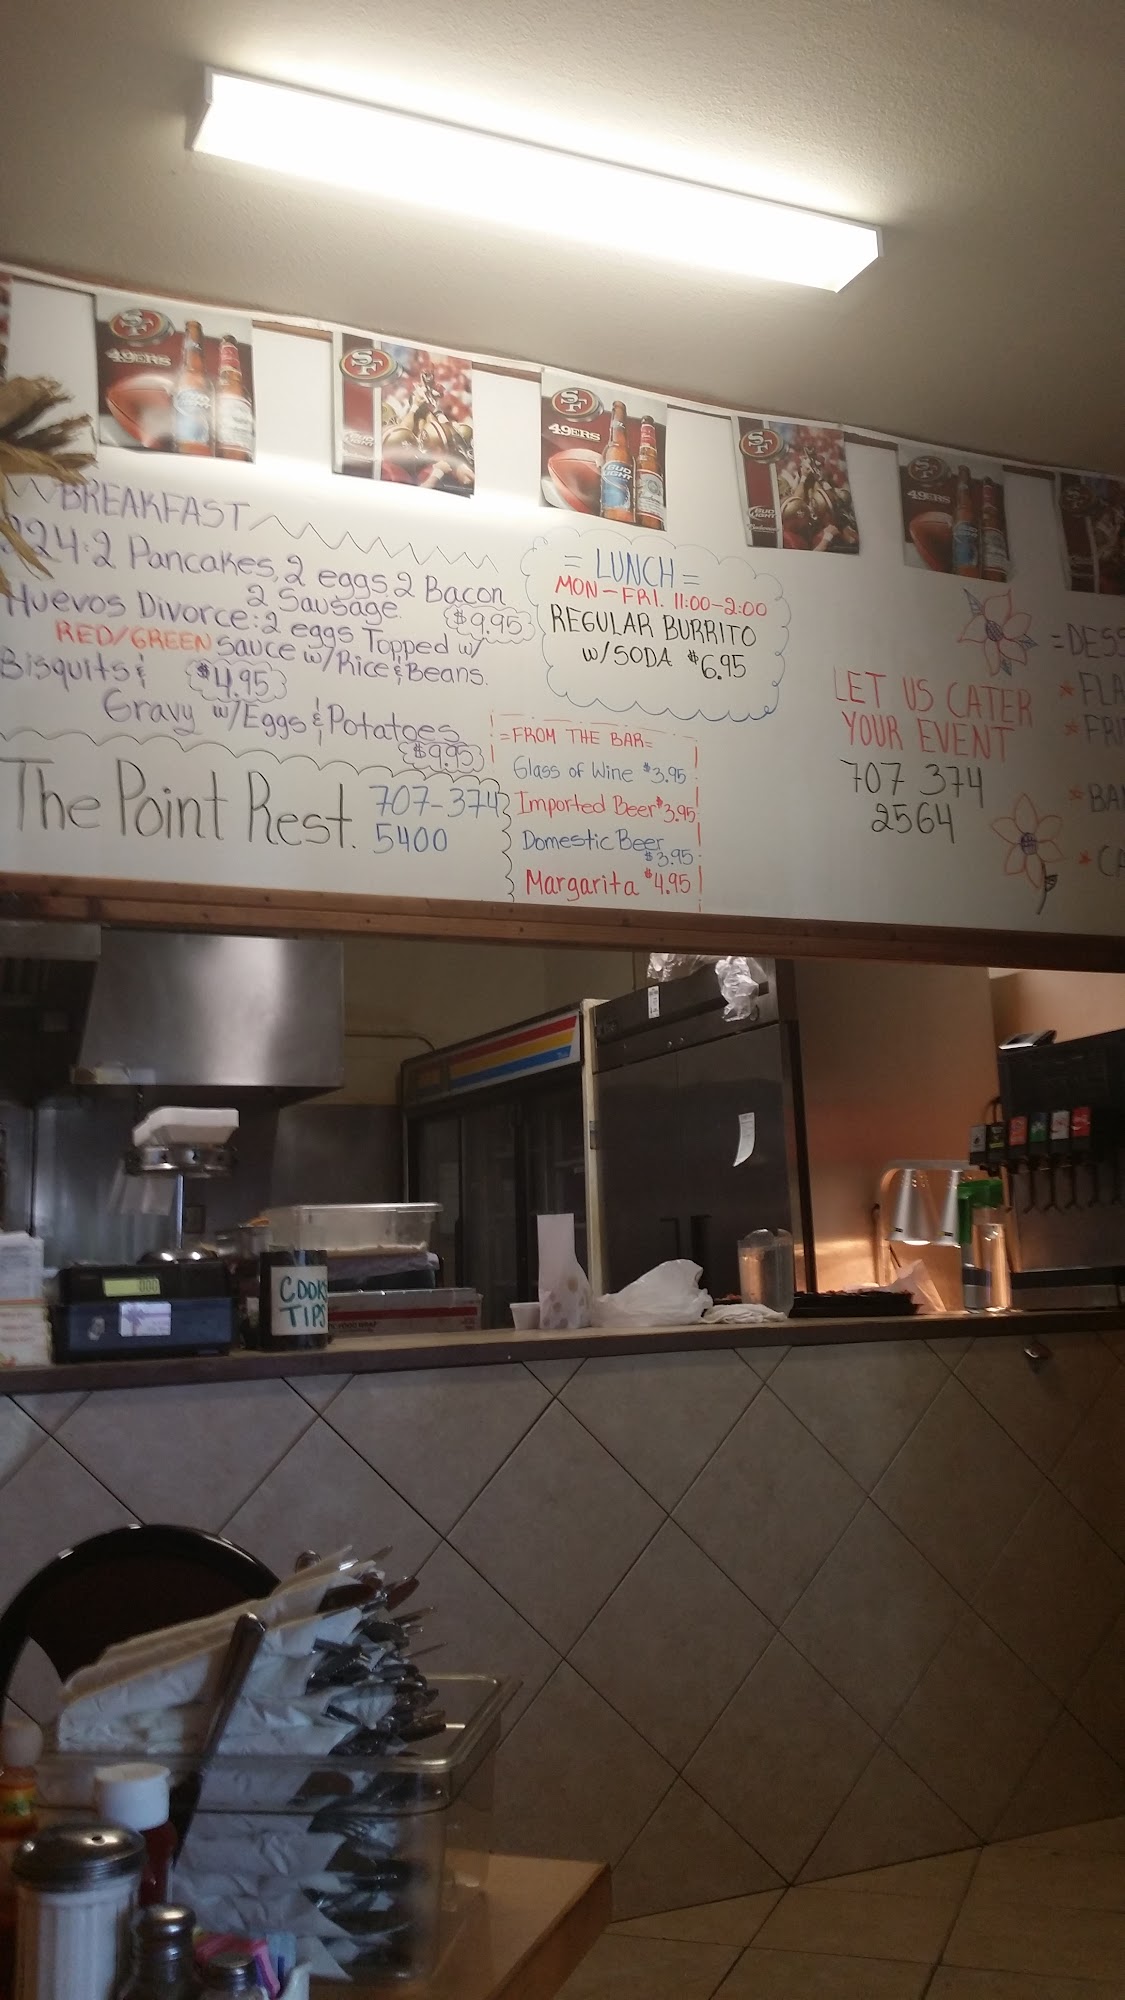 SF
49ERS
SF
SF
49ERS
BUD LIGHT
SF
BUD LIGHT
SF
49ERS
BREAKFAST
2 Pancakes, 2 eggs, 2 Bacon
2 Sausage. $9.95
Huevos Divorce: 2 eggs Topped w/
RED/GREEN Sauce w/Rice & Beans.
$4.95
Bisquits &
Gravy w/Eggs & Potatoes
$9.95
The Point Rest. 707-374
5400
= LUNCH =
MON-FRI. 11:00-2:00
REGULAR BURRITO
w/SODA $6.95
=FROM THE BAR=
Glass of Wine $3.95
Imported Beer $3.95
Domestic Beer
$3.95
Margarita $4.95
LET US CATER
YOUR EVENT
707 374
2564
=DESS
*FLA
*FRI
*BA
*CA
COOK
TIPS